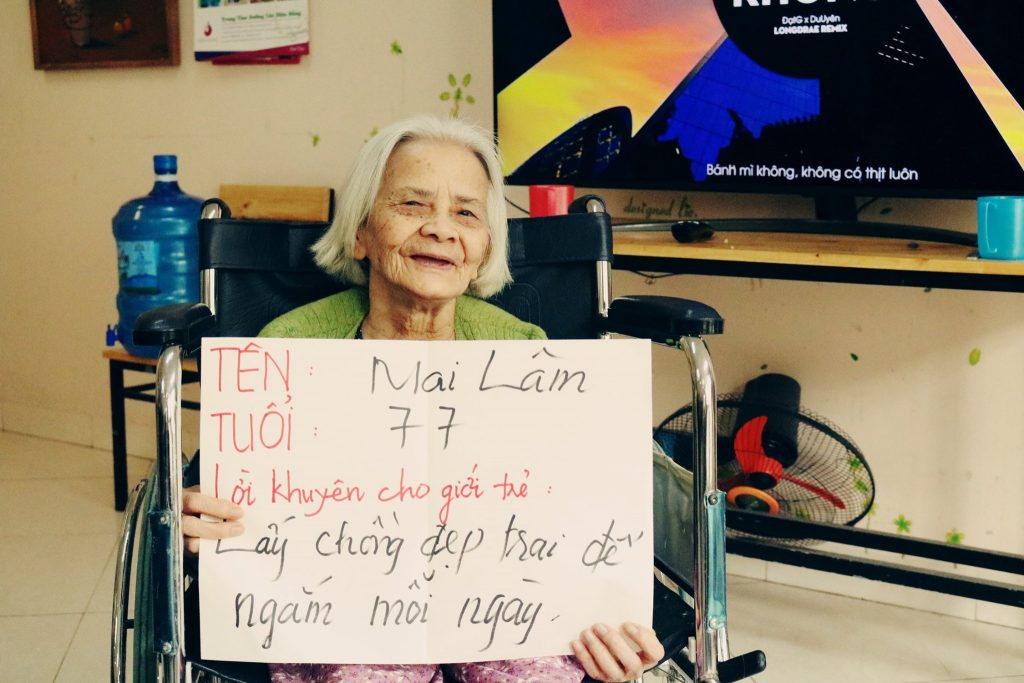 Trung Tâm Dưỡng Lão Diên Hồng
ĐạtG x DuUyên
LONGDRAE REMIX
Bánh mì không, không có thịt luôn
designed
TÊN : Mai Lâm
TUỔI : 77
Lời khuyên cho giới trẻ :
Lấy chồng đẹp trai để
ngắm mỗi ngày.